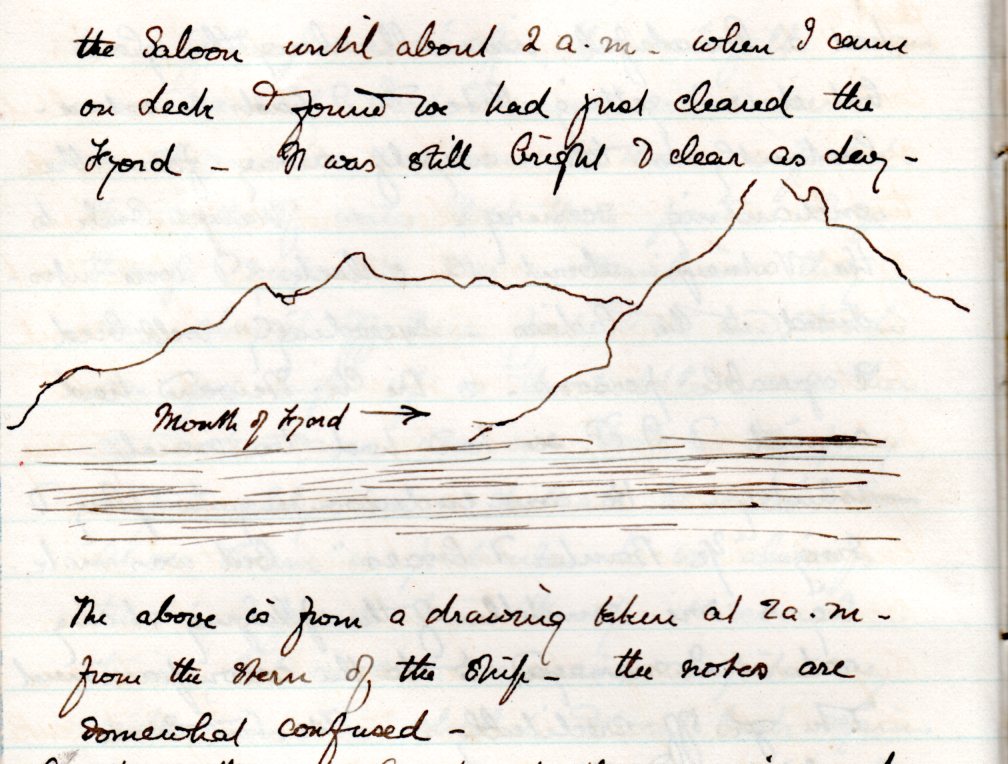 the Saloon until about 2 a.m - when I came
on deck I found we had just cleared the
Fjord - It was still bright & clear as day -
Mouth of Fjord →
The above is from a drawing taken at 2 a.m -
from the stern of the ship - the notes are
somewhat confused -